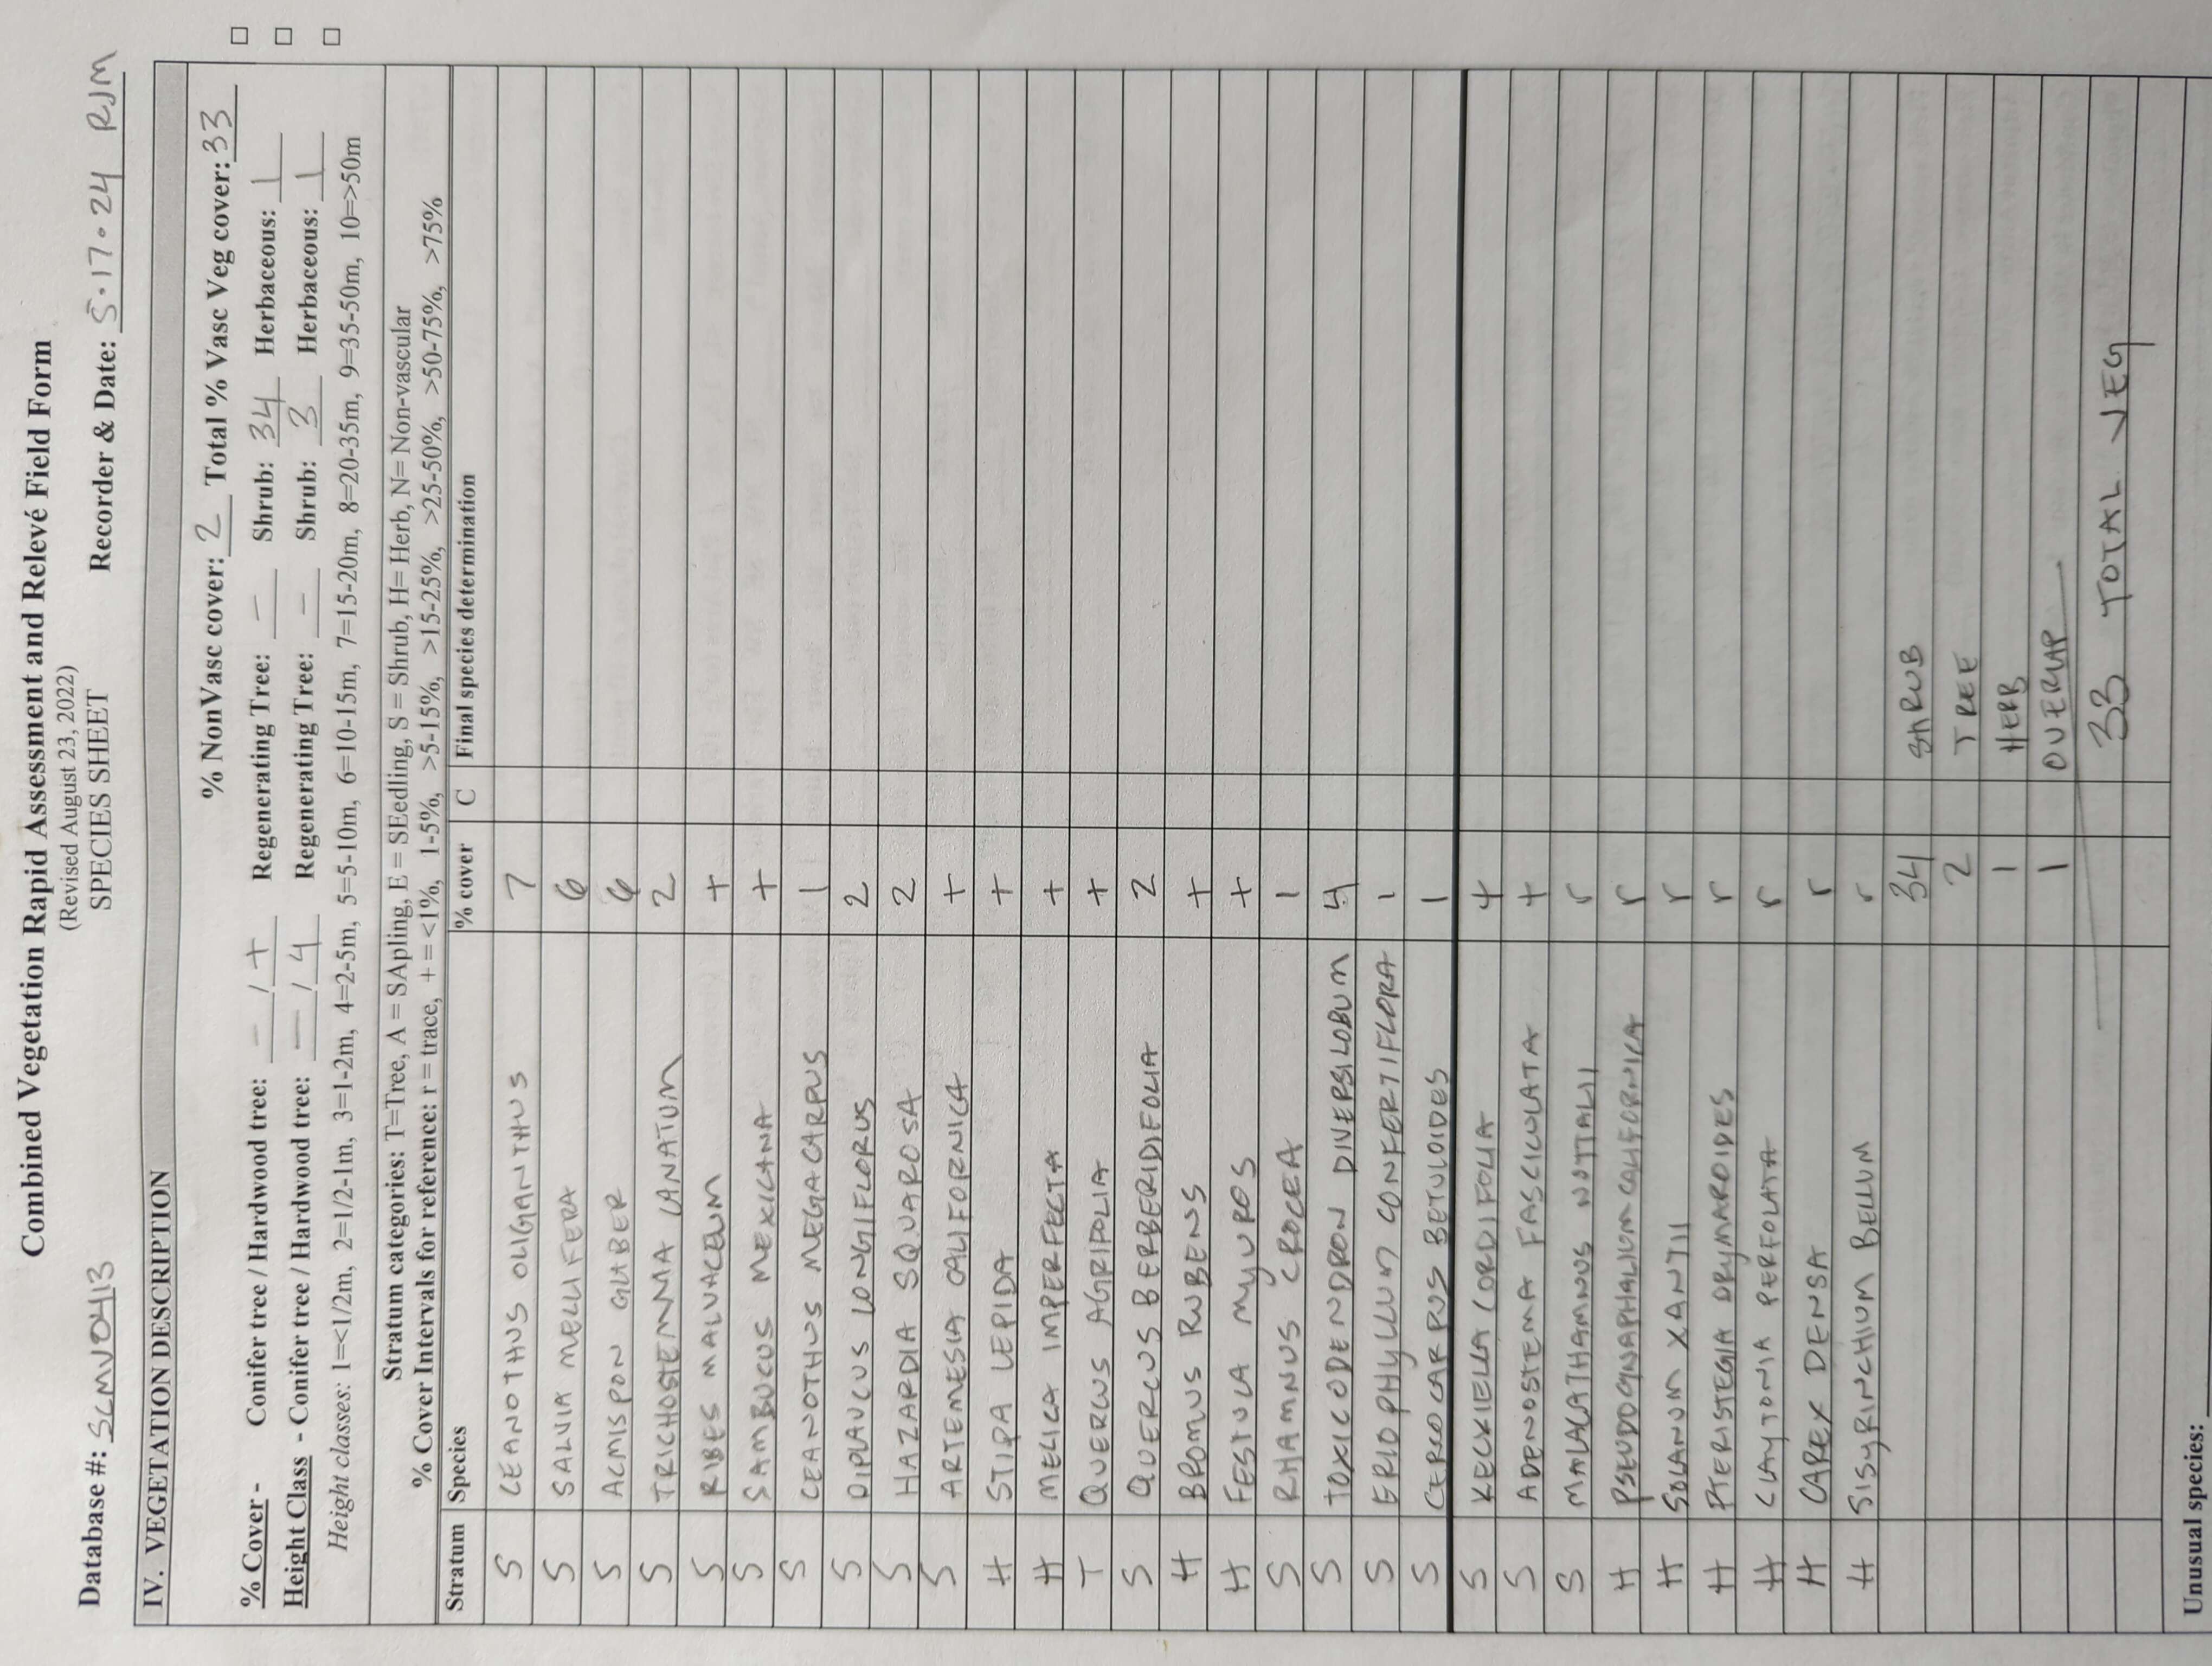 Combined Vegetation Rapid Assessment and Relevé Field Form
(Revised August 23, 2022)
SPECIES SHEET
Database #: SCMV0413 Recorder & Date: 5.17.24 RJM
IV. VEGETATION DESCRIPTION
% NonVasc cover: 2 Total % Vasc Veg cover: 33
% Cover - Conifer tree / Hardwood tree: - / + Regenerating Tree: - Shrub: 34 Herbaceous: 1
Height Class - Conifer tree / Hardwood tree: - / 4 Regenerating Tree: - Shrub: 3 Herbaceous: 1
Height classes: 1=<1/2m, 2=1/2-1m, 3=1-2m, 4=2-5m, 5=5-10m, 6=10-15m, 7=15-20m, 8=20-35m, 9=35-50m, 10=>50m
Stratum categories: T=Tree, A = SApling, E = SEedling, S = Shrub, H= Herb, N= Non-vascular
% Cover Intervals for reference: r = trace, + = <1%, 1-5%, >5-15%, >15-25%, >25-50%, >50-75%, >75%
Stratum Species % cover C Final species determination
S CEANOTHUS OLIGANTHUS 7
S SALVIA MELLIFERA 6
S ACMISPON GLABER 6
S TRICHOSTEMMA LANATUM 2
S RIBES MALVACEUM +
S SAMBUCUS MEXICANA +
S CEANOTHUS MEGACARPUS 1
S DIPLAUCUS LONGIFLORUS 2
S HAZARDIA SQUAROSA 2
S ARTEMESIA CALIFORNICA +
H STIPA LEPIDA +
H MELICA IMPERFECTA +
T QUERCUS AGRIFOLIA +
S QUERCUS BERBERIDIFOLIA 2
H BROMUS RUBENS +
H FESTUCA MYUROS +
S RHAMNUS CROCEA 1
S TOXICODENDRON DIVERSILOBUM 4
S ERIOPHYLLUM CONFERTIFLORA 1
S CERCOCARPUS BETULOIDES 1
S KECKIELLA CORDIFOLIA 4
S ADENOSTEMA FASCICULATA +
S MALACATHAMNUS NUTTALII r
H PSEUDOGNAPHALIUM CALIFORNICA r
H SOLANUM XANTII r
H PTERISTEGIA DRYMAROIDES r
H CLAYTONIA PERFOLATA r
H CAREX DENSA r
H SISYRINCHIUM BELLUM r
34 SHRUB
2 TREE
1 HERB
1 OVERLAP
33 TOTAL VEG
Unusual species: